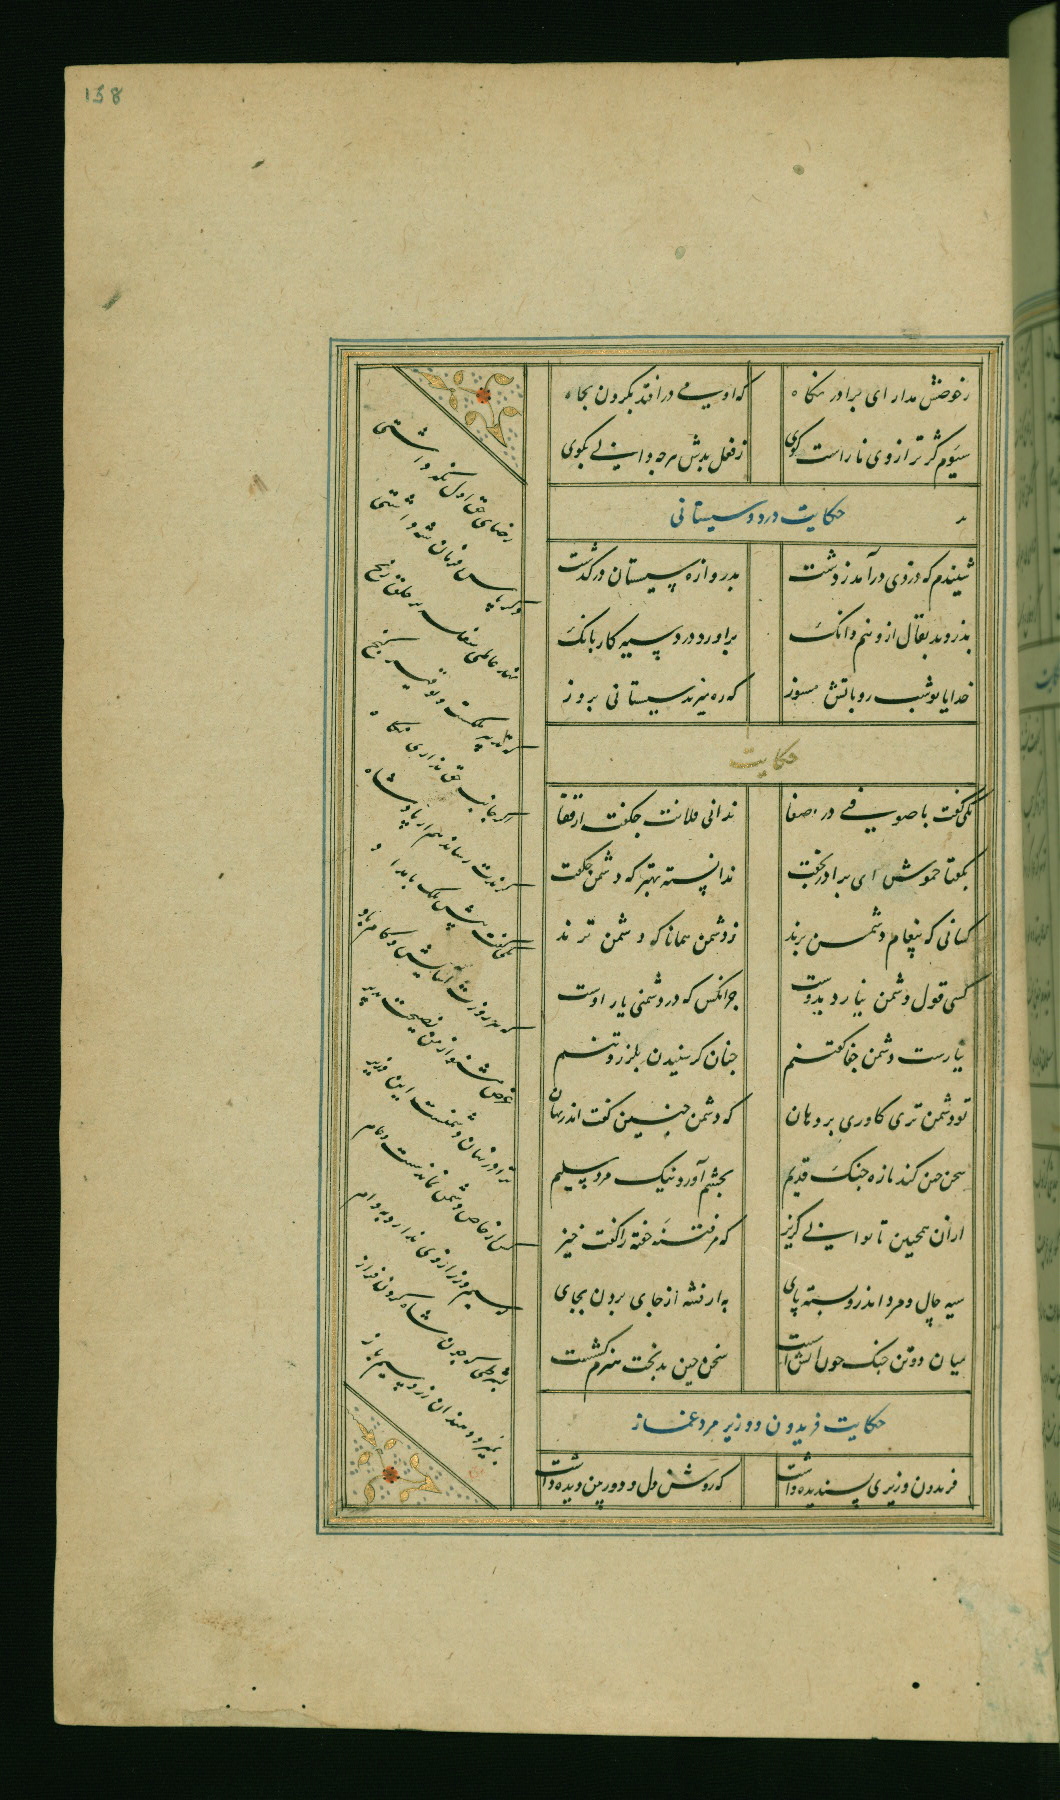 158
ز حوضش مدار ای برادر نگاه که او می در افتد بگردن بجاه
سیوم کژ ترازوی ناراست کوی ز فعل بدش هرچه دانی بکوی
حکایت دزد و سیستانی
شنیدم که دزدی درآمد ز دشت بدروازه سیستان درگذشت
بدزدید بقال ازو نیم دانک براورد دزد سیه کار بانک
خدایا تو شب رو باتش مسوز که ره میزند سیستانی بروز
حکایت
یکی گفت با صوفی در صفا ندانی فلانت چه گفت از قفا
بگفتا خموش ای برادر بخفت ندانسته بهتر که دشمن چکفت
کسانی که پیغام دشمن برند ز دشمن همانا که دشمن ترند
کسی قول دشمن نیارد بدوست جز انکس که در دشمنی یار اوست
نیارست دشمن جفا گفتنم چنان کز شنیدن بلرزد تنم
تو دشمن تری کاوری بر دهان که دشمن چنین گفت اندر نهان
سخن چین کند تازه جنک قدیم بخشم آورد نیک مرد سلیم
ازان همنشین تا توانی کریز که مر فتنه خفته را گفت خیز
سیه چال و مرد اندرو بسته پای به از فتنه از جای بردن بجای
میان دو تن جنک چون آتش است سخن چین بدبخت هیزم کش است
حکایت فریدون و وزیر و مرد غماز
فریدون وزیری پسندیده داشت که روشن دل و دوربین دیده داشت
رضای حق اول نگه داشتی
وکر پاس فرمان شه داشتی
نهد عامل سفله بر خلق رنج
که تدبیر ملکست و توفیر کنج
اگر جانب حق نداری نگاه
گزندت رساند هم از پادشاه
یکی رفت پیش ملک بامداد
که هر روزت آسایش و کام باد
غرض مشنو از من نصیحت پذیر
ترا در نهان دشمنست این وزیر
کس از خاص لشکر نماندست و عام
که سیم و زر از وی ندارد بوام
بشرطی که چون شاه گردن فراز
بمیرد دهند ان زر و سیم باز